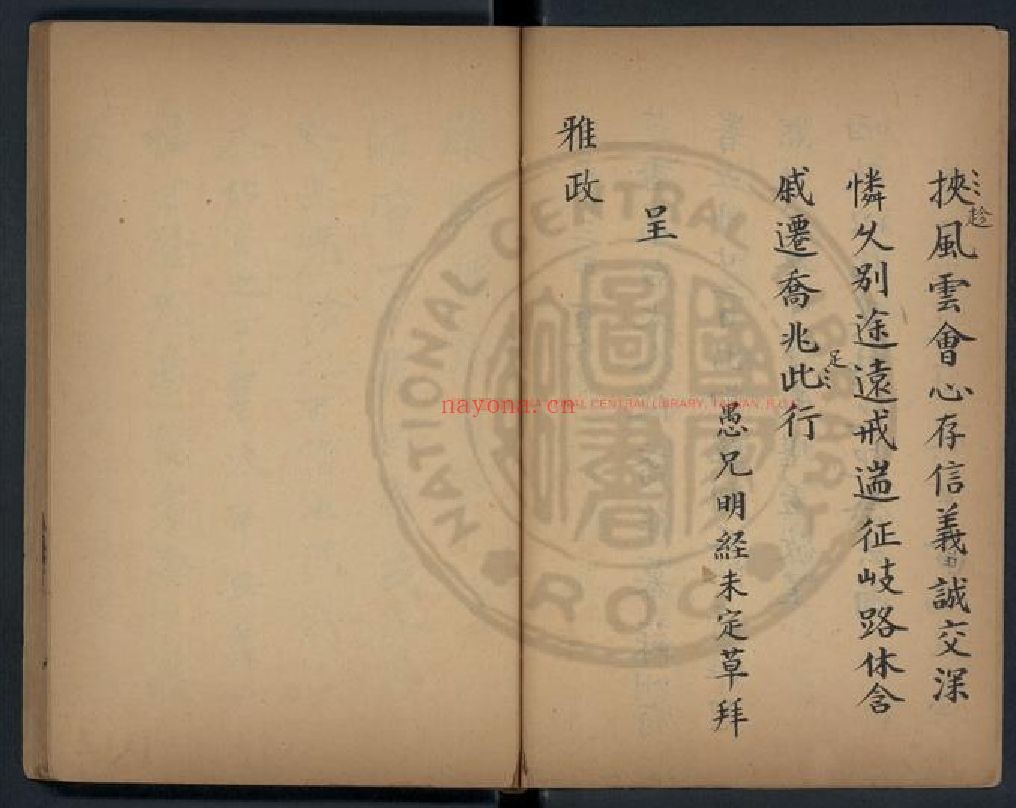 挾風雲會心存信義誠交深
趁
憐久別途遠戒遄征岐路休含
戚遷喬兆此行
足
愚兄明經未定草拜
呈
雅政
NATIONAL CENTRAL LIBRARY
ROC
nayona.cn
CENTRAL LIBRARY, TAIWAN, R.O.C